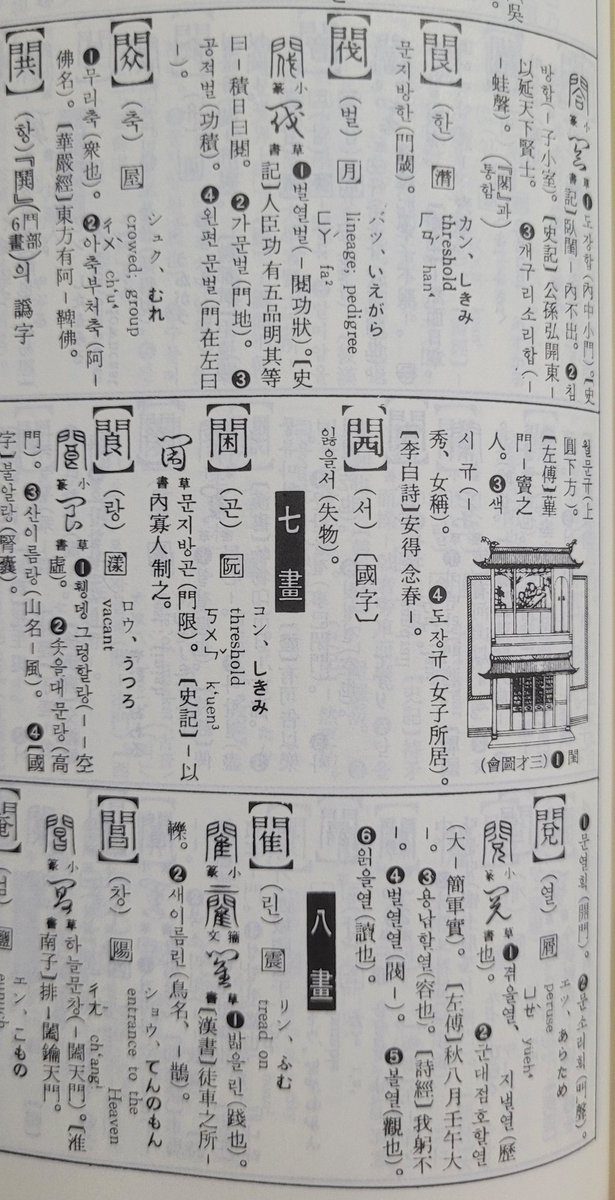 吳
小篆 草書 ❶도장합(內中小門)。〔史
記〕臥閨―內不出。❷침
방합(―子小室)。〔史記〕公孫弘開東―
以延天下賢士。❸개구리소리합(―
―蛙聲)。(『閤』과 통함)
(한) 潸 カン、しきみ threshold ㄏㄢˋ han⁴
문지방한(門閾)。
【閥】 (벌) 月 バツ、いえがら lineage, pedigree ㄈㄚˊ fa²
小篆 草書 ❶벌열벌(―閱功狀)。〔史
記〕人臣功有五品明其等
曰―積日曰閱。❷가문벌(門地)。❸
공적벌(功積)。❹왼편 문벌(門在左曰
―)。
(축) 屋 シュク、むれ crowed, group ㄔㄨˋ ch'u⁴
❶무리축(衆也)。❷아축부처축(阿―
佛名)。〔華嚴經〕東方有阿―鞞佛。
【閧】 (항)『鬨』(鬥部 6畫)의 譌字
월문규(上
圓下方)。
〔左傳〕蓽
門―竇之
人。❸색
시규(―
秀、女稱)。❹도장규(女子所居)。
〔李白詩〕安得念春―。
閨❶(三才圖會)
(서) 〔國字〕
잃을서(失物)。
七畫
【閫】 (곤) 阮 コン、しきみ threshold ㄎㄨㄣˇ k'uen³
草書 문지방곤(門限)。〔史記〕―以
內寡人制之。
【閬】 (랑) 漾 ロウ、うつろ vacant
小篆 草書 ❶휑뎅그렁할랑(――空
虛)。❷솟을대문랑(高
門)。❸산이름랑(山名―風)。❹〔國
字〕불알랑(腎囊)。
❶문열회(開門)。❷문소리회(門聲)。
【閱】 (열) 屑 エツ、あらため peruse ㄩㄝˋ yueh⁴
小篆 草書 ❶겪을열、지낼열(歷
也)。❷군대점호할열
(大―簡軍實)。〔左傳〕秋八月壬午大
―。❸용납할열(容也)。〔詩經〕我躬不
―。❹벌열열(閥―)。❺볼열(觀也)。
❻읽을열(讀也)。
八畫
【閵】 (린) 震 リン、ふむ tread on
小篆 籀文 草書 ❶밟을린(踐也)。
〔漢書〕徒車之所―
轢。❷새이름린(鳥名、―鵲)。
【閶】 (창) 陽 ショウ、てんのもん entrance to the Heaven ㄔㄤ ch'ang¹
小篆 草書 하늘문창(―闔天門)。〔淮
南子〕排―闔鑰天門。
エン、こもの